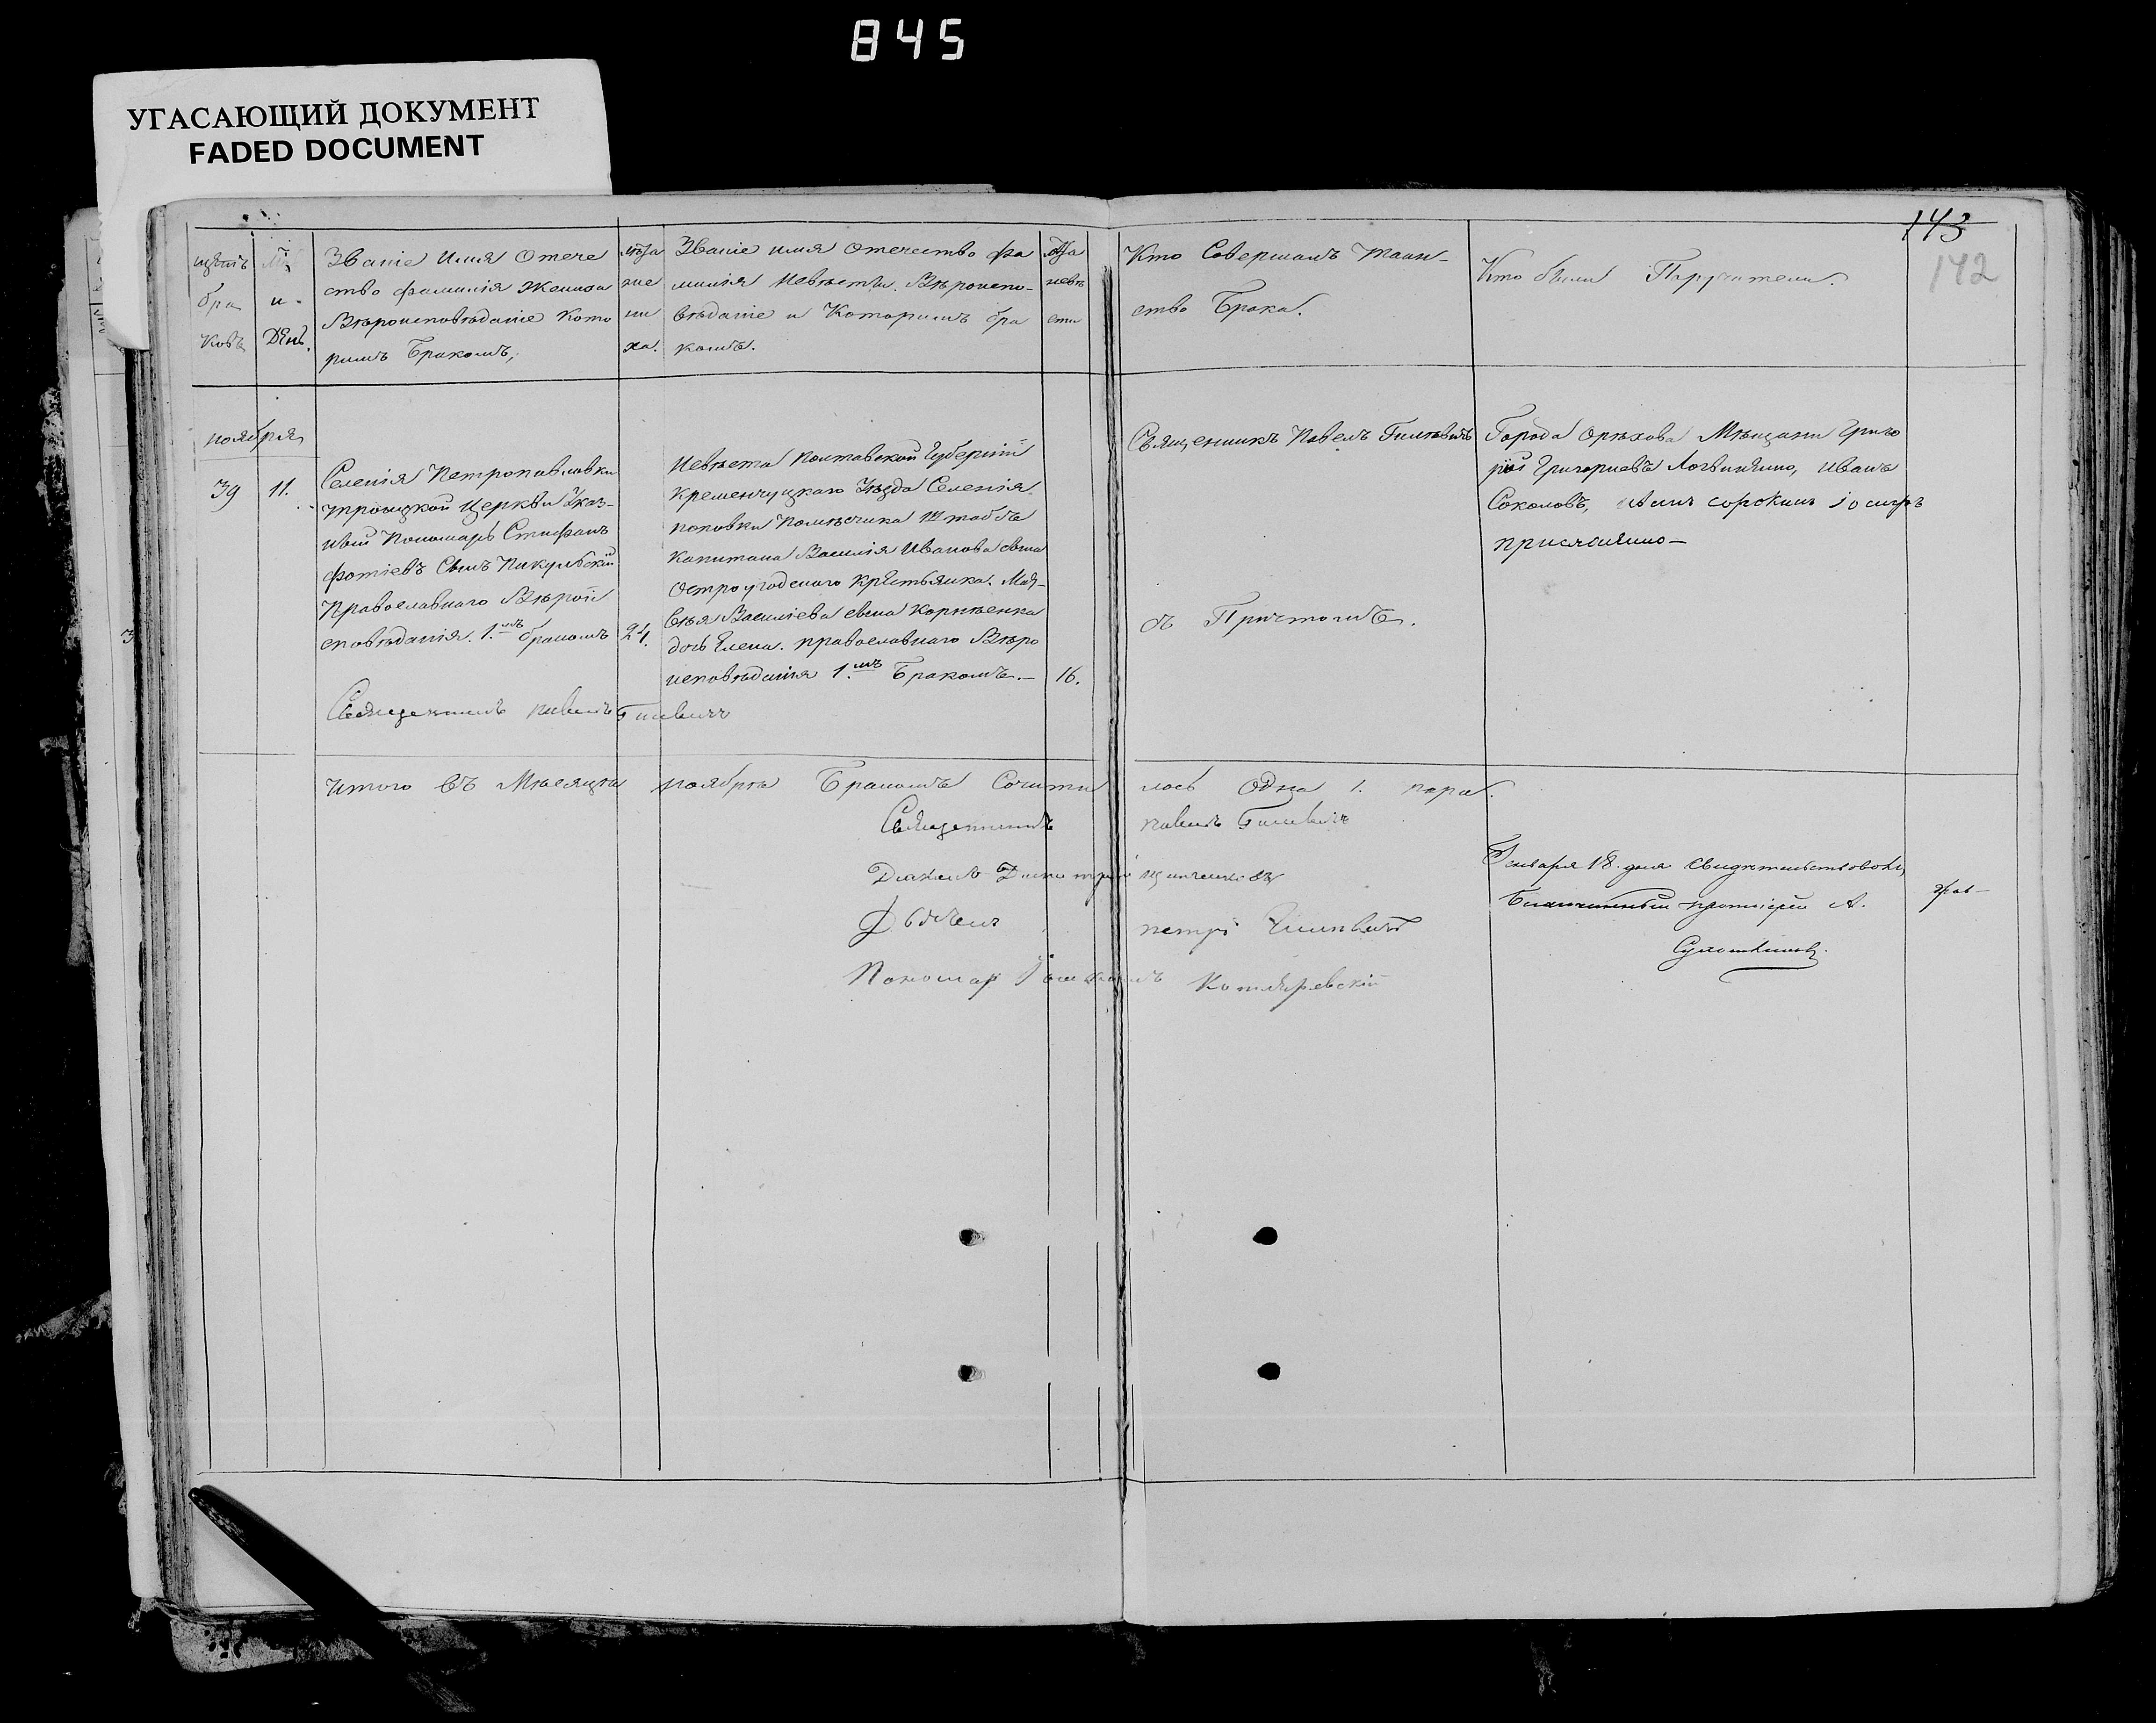 845
УГАСАЮЩИЙ ДОКУМЕНТ
FADED DOCUMENT
143
142
щетъ
бра
ковъ
и
День.
Званіе Имя Отече
ство фамилія жениха
Вѣроисповѣданіе кото
римъ Бракомъ,
лѣта
же
ни
ха.
Званіе имя Отечество фа
милія Невѣсти. Вѣроиспо-
вѣданіе и Которимъ бра
комъ.
лѣта
невѣ
сти
Кто Совершалъ Таин-
ство Брака.
Кто были Поручители.
ноября
39
11.
Селенія Петропавловки
троицкой Церкви Указ-
ный Пономарь Стефанъ
фотіевъ Сынъ Пикульскій
Православнаго Вѣрои
сповѣданія. 1.мъ бракомъ
21.
Священникъ павелъ Гилевичъ
Невѣста Полтавской Губерніи
Кременчуцкаго Уѣзда Селенія
поповки Помѣсчика Штабсъ
Капитана Василія Иванова сына
Остроградскаго Крестьянка. Мат-
вѣя Василіева сына Корнѣенка
дочь Елена. православнаго Вѣро
исповѣданія 1.мъ Бракомъ.-
16.
Священникъ Павелъ Гилѣвичъ
съ Причтомъ.
Города Орѣхова Мѣщани Григо
рій Григориевъ Логвиненко, Иванъ
Соколовъ, сорокинъ
итого въ Мѣсяцѣ ноябрѣ Бракомъ Сочита лось Одна 1. пара.
Священникъ павелъ Гилевичъ
Диаконъ Димитрій
Дьячокъ петръ
Пономар Котляревскій
Генваря 18. дня свидетельствовалъ
Благочинный протоіерей А.